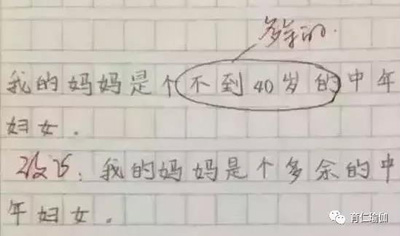 多余的
我的妈妈是个不到40岁的中年
妇女。
改巧:我的妈妈是个多余的中
年妇女。
育仁瑜伽